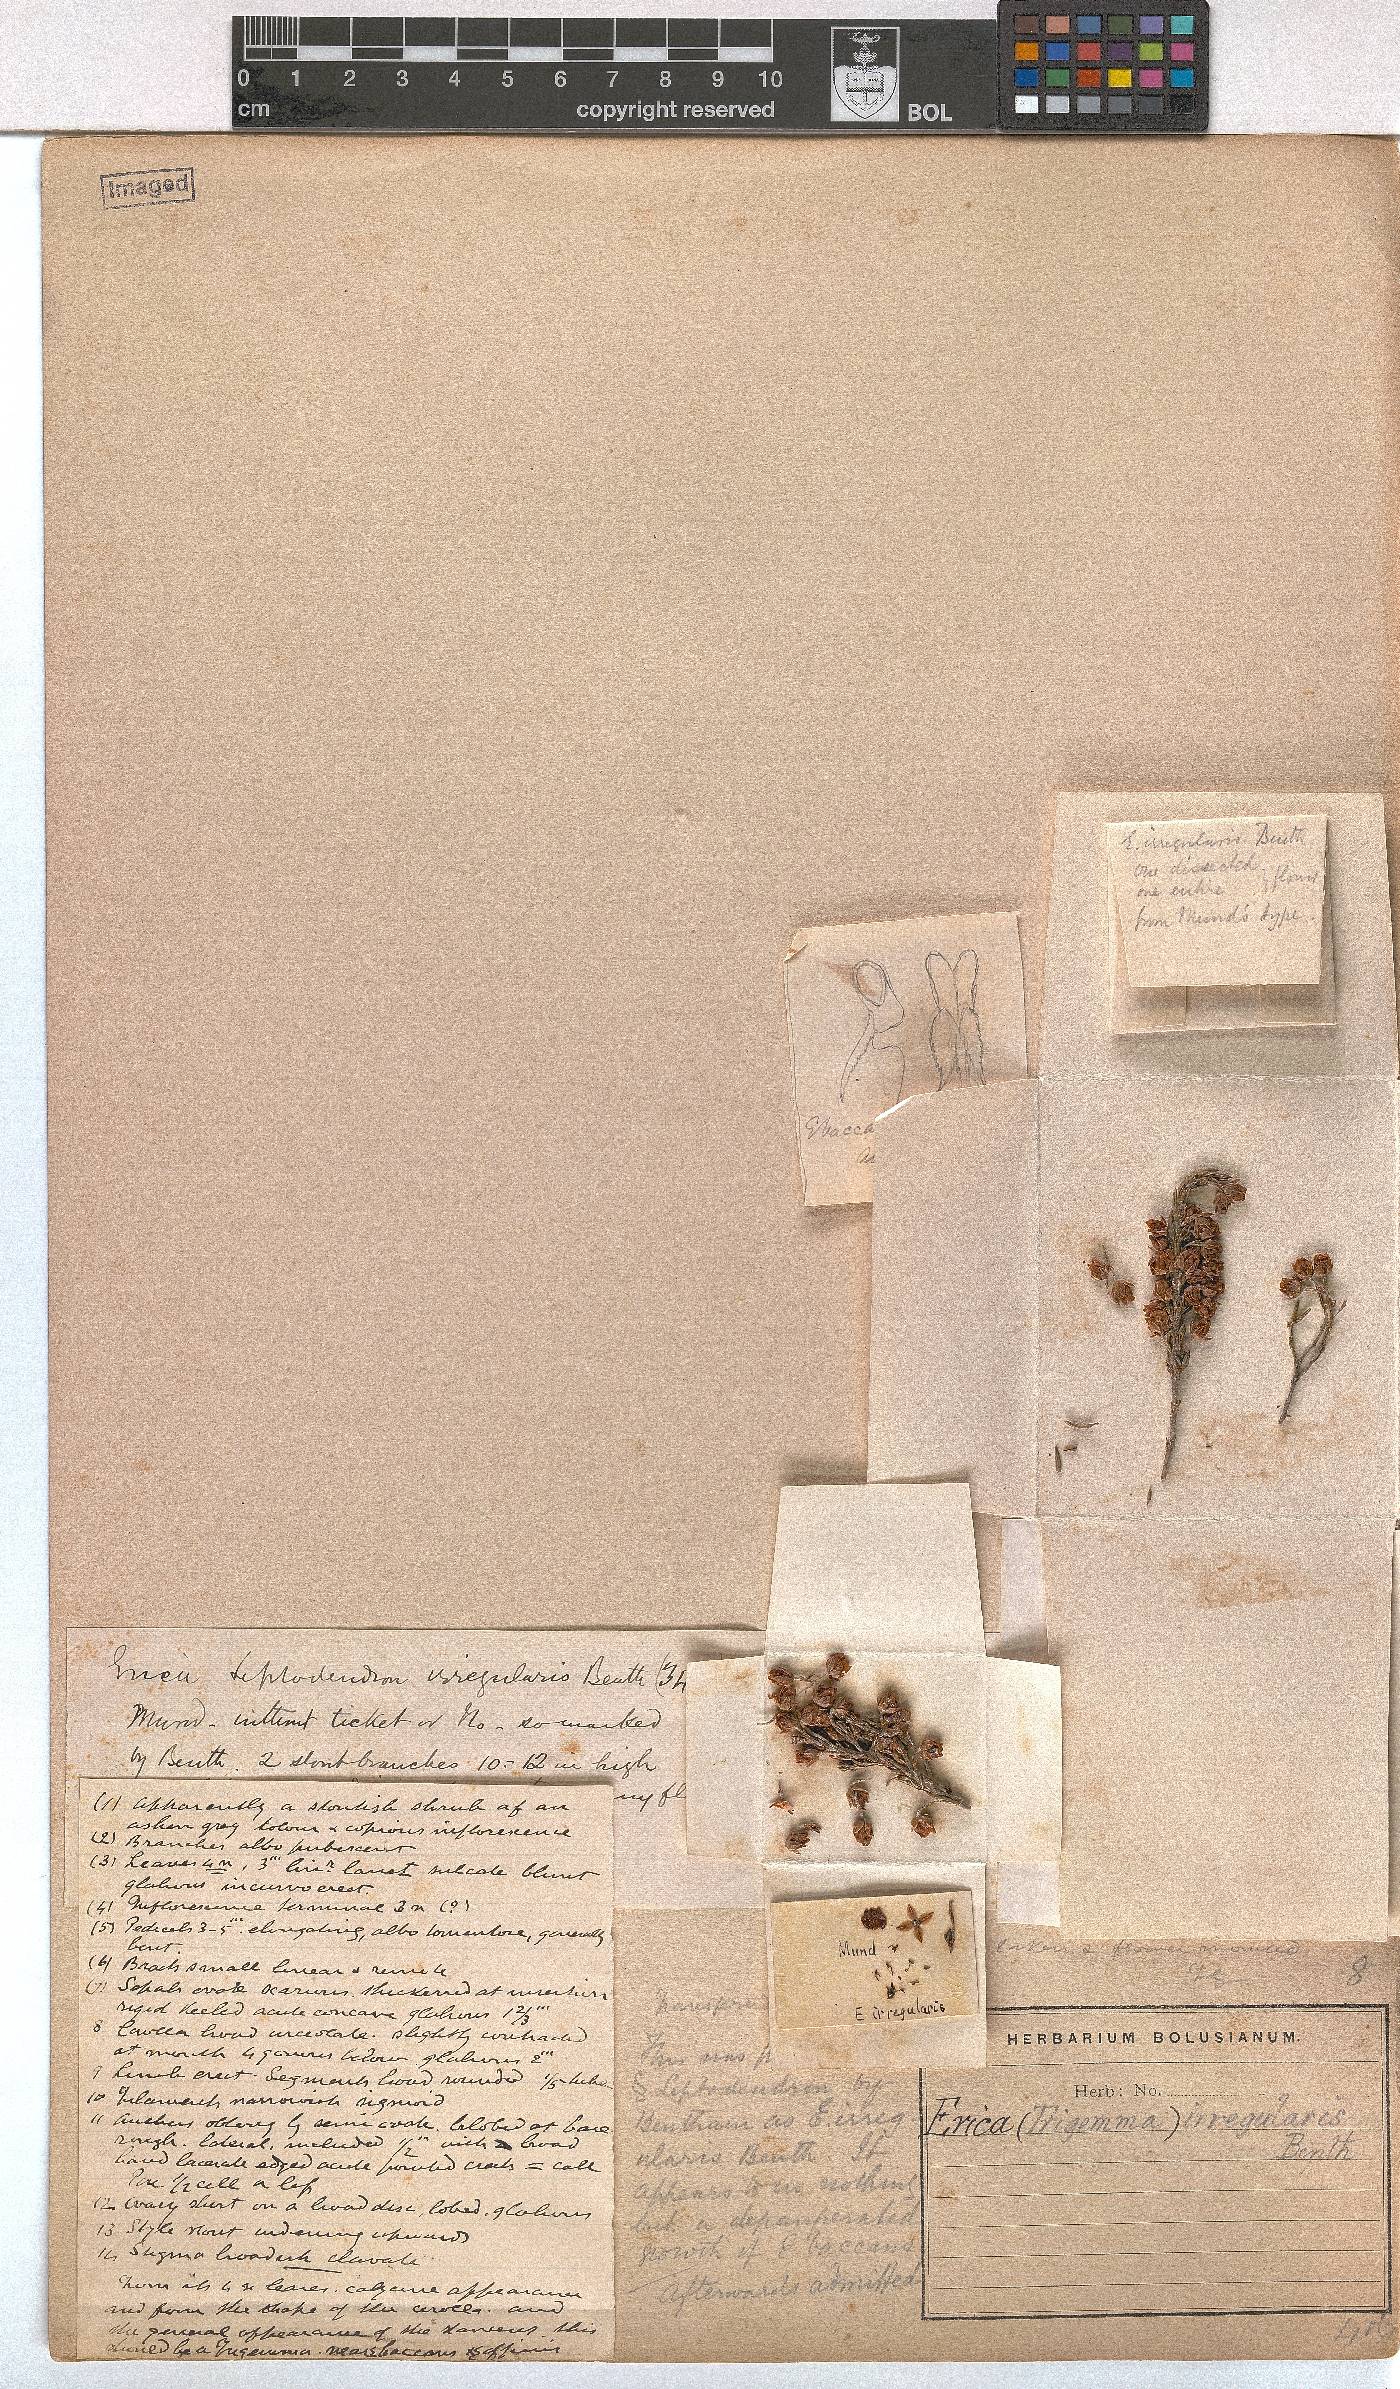 0 1 2 3 4 5 6 7 8 9 10
cm copyright reserved BOL
Imaged
E. irregularis Benth
one dissected
one entire flower
from Mund's type.
E. bacca
Erica Leptodendron irregularis Benth (34
Mund - without ticket or No - so marked
by Benth. 2 stout branches 10-12 in high
ny fl
(1) Apparently a stoutish shrub of an
ashen grey colour & copious inflorescence
(2) Branches albo pubescent
(3) Leaves 4n, 3''' lin. lanct sulcate blunt
glabrous incurvo erect.
(4) Inflorescence terminal 3n (?)
(5) Pedicels 3-5''' elongating, albo tomentose, generally
bent.
(6) Bracts small linear & remote
(7) Sepals ovate scarious thickened at insertion
rigid keeled acute concave glabrous 1 2/3'''
8 Corolla broad urceolate. slightly contracted
at mouth 4 gonous below glabrous 2'''
9 Limb erect Segments broad rounded 1/5 tube
10 Filaments narrowish sigmoid
11 Anthers obliquely semi ovate. bilobed at base
rough. lateral, included 1/2''' with broad
lacerate edged acute pointed crests = cell
Pore 1/2 cell or less
12 Ovary short on a broad disc, lobed. glabrous
13 Style stout widening upwards
14 Stigma broadish clavate.
From its 4n leaves. calycine appearance
and from the shape of the corolla. and
the general appearance of the flowers this
should be a Trigemma. near baccans & affinis
Mund
E irregularis
taken & flower mounted
8
This was p
§ Leptodendron by
Bentham as E. irreg-
ularis Benth It
appears to us nothing
but a depauperated
growth of E baccans
afterwards admitted
HERBARIUM BOLUSIANUM.
Herb: No.
Erica (Trigemma) irregularis
Benth